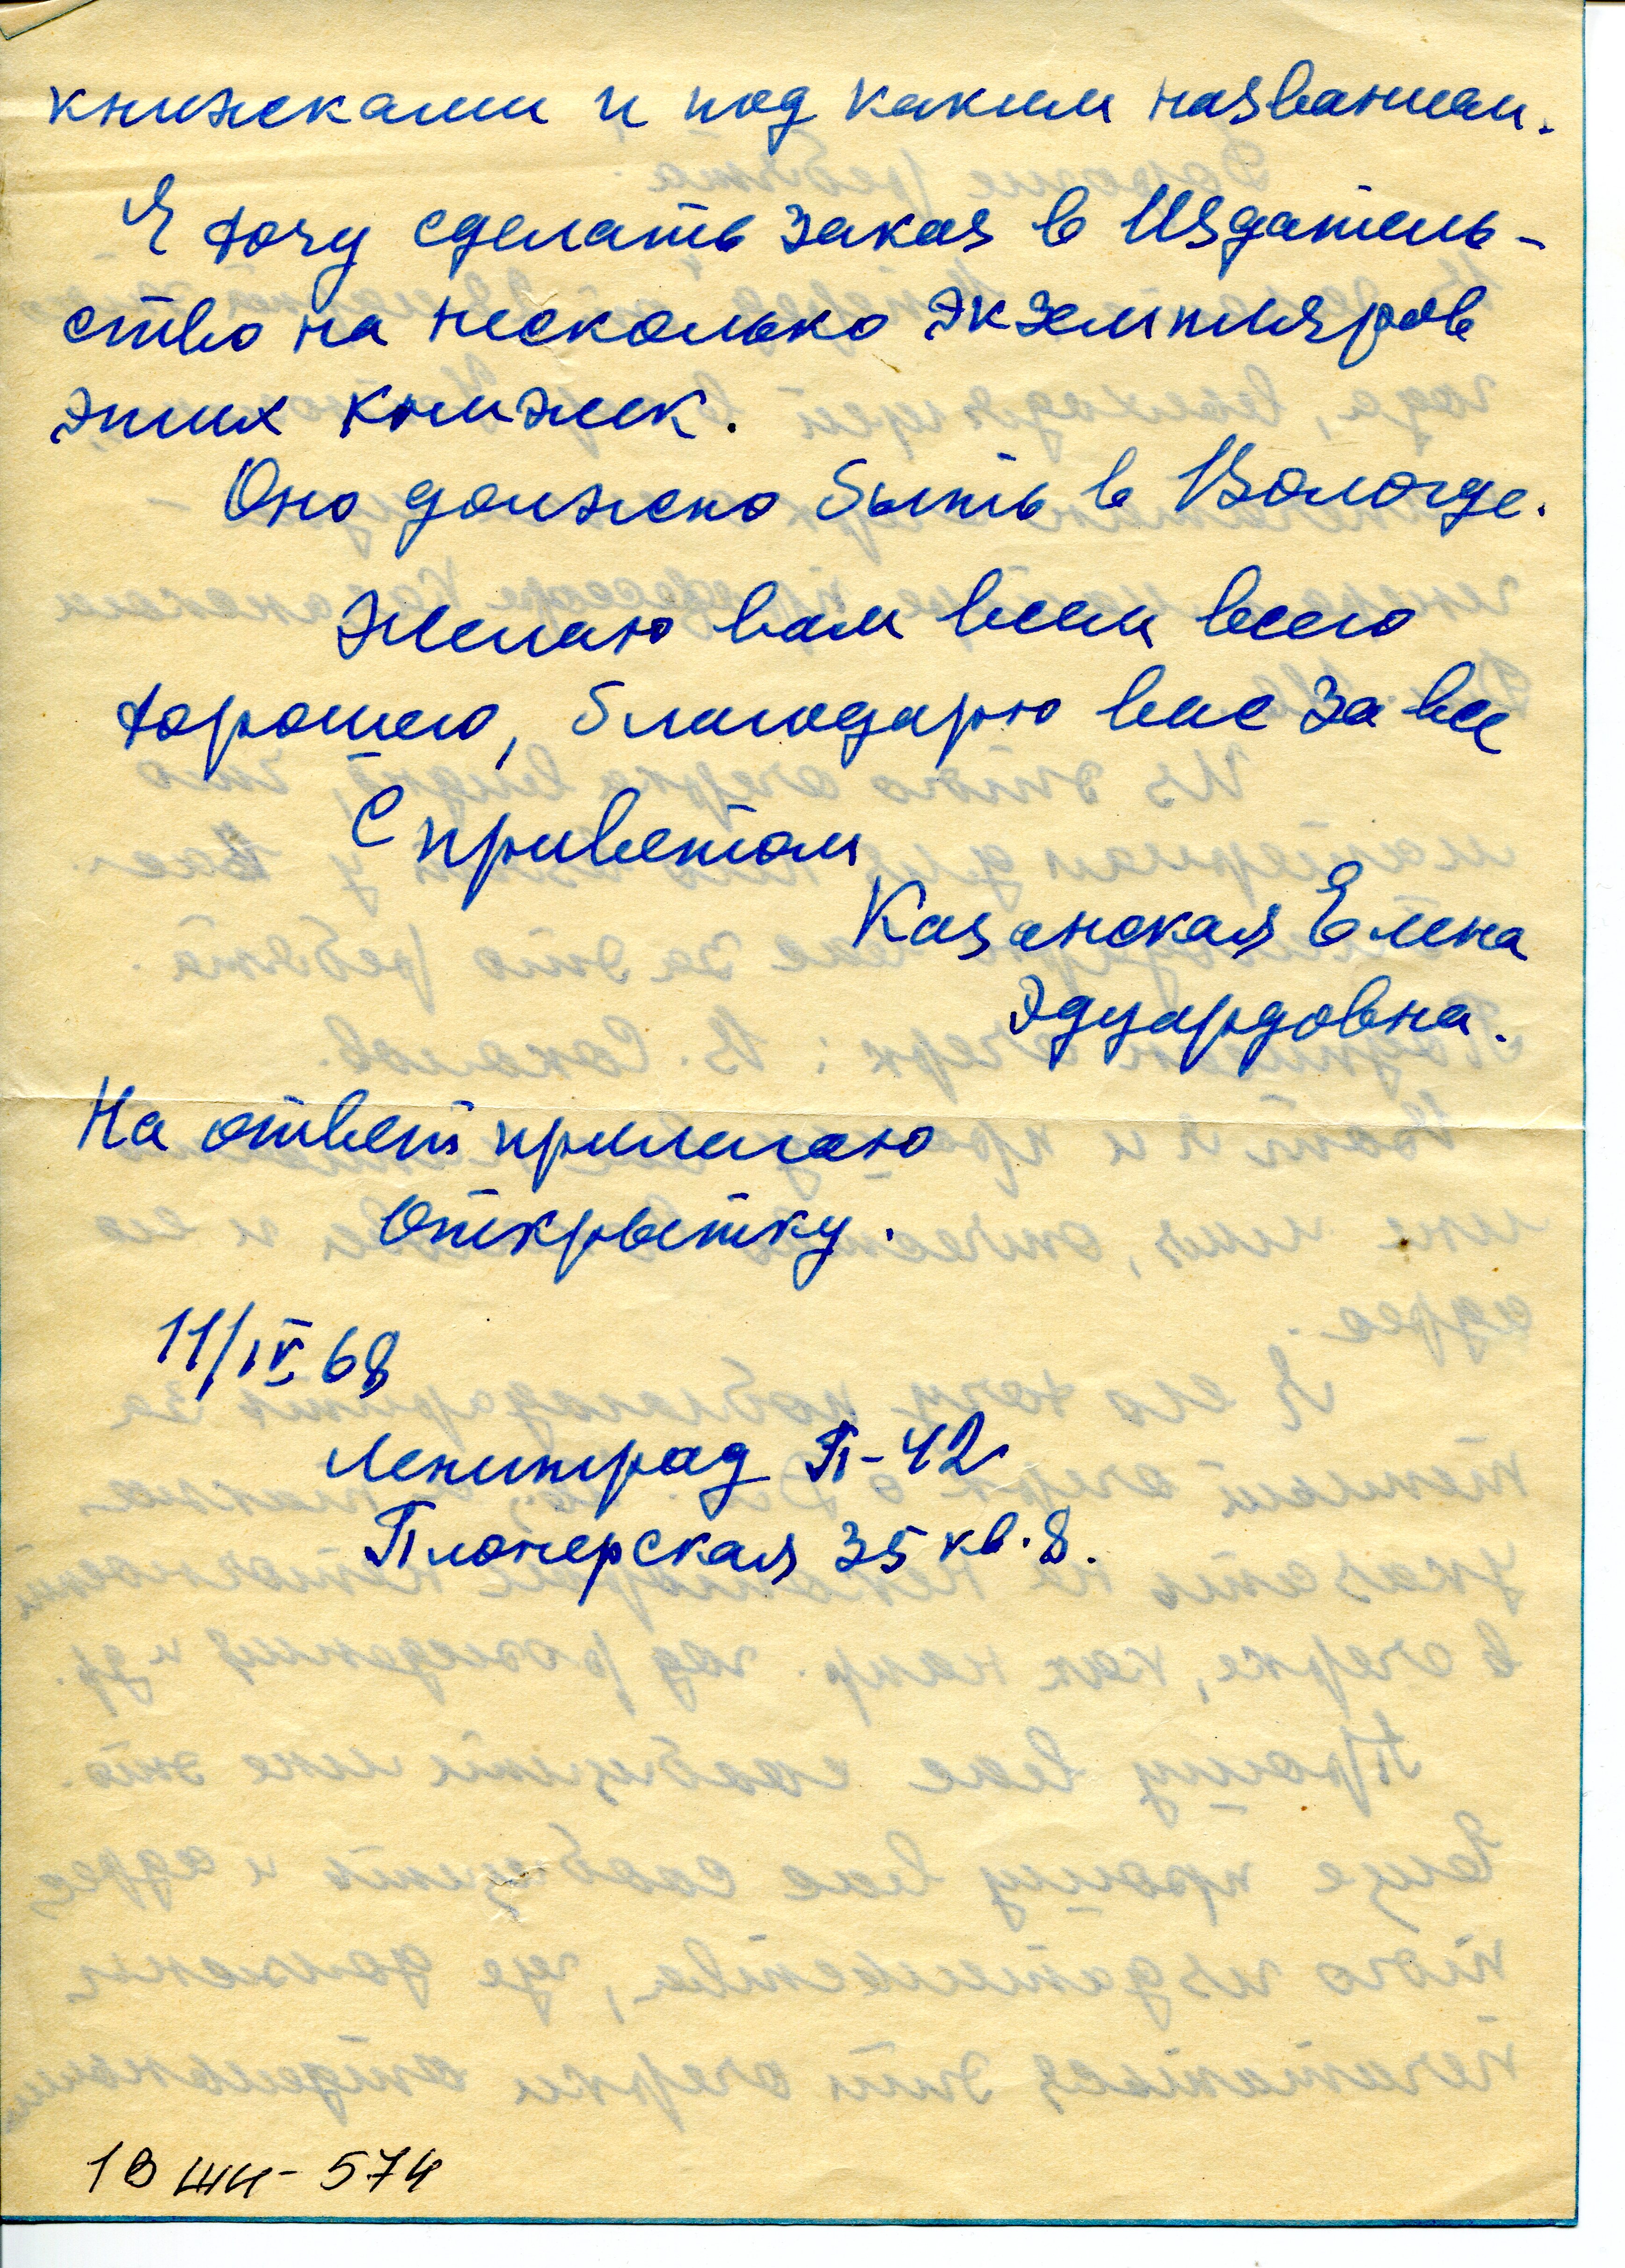 книжеками и под каким названием.
Я хочу сделать заказ в Издатель-
ство на несколько экземпляров
этих книжек.
Оно должно быть в Вологде.
Желаю вам всем всего
хорошего, благодарю вас за все
С приветом
Казанская Елена
Эдуардовна.
На ответ прилагаю
открытку.
11/IV 68
Ленинград П-42
Пионерская 35 кв. 8.
1В ШИ-574